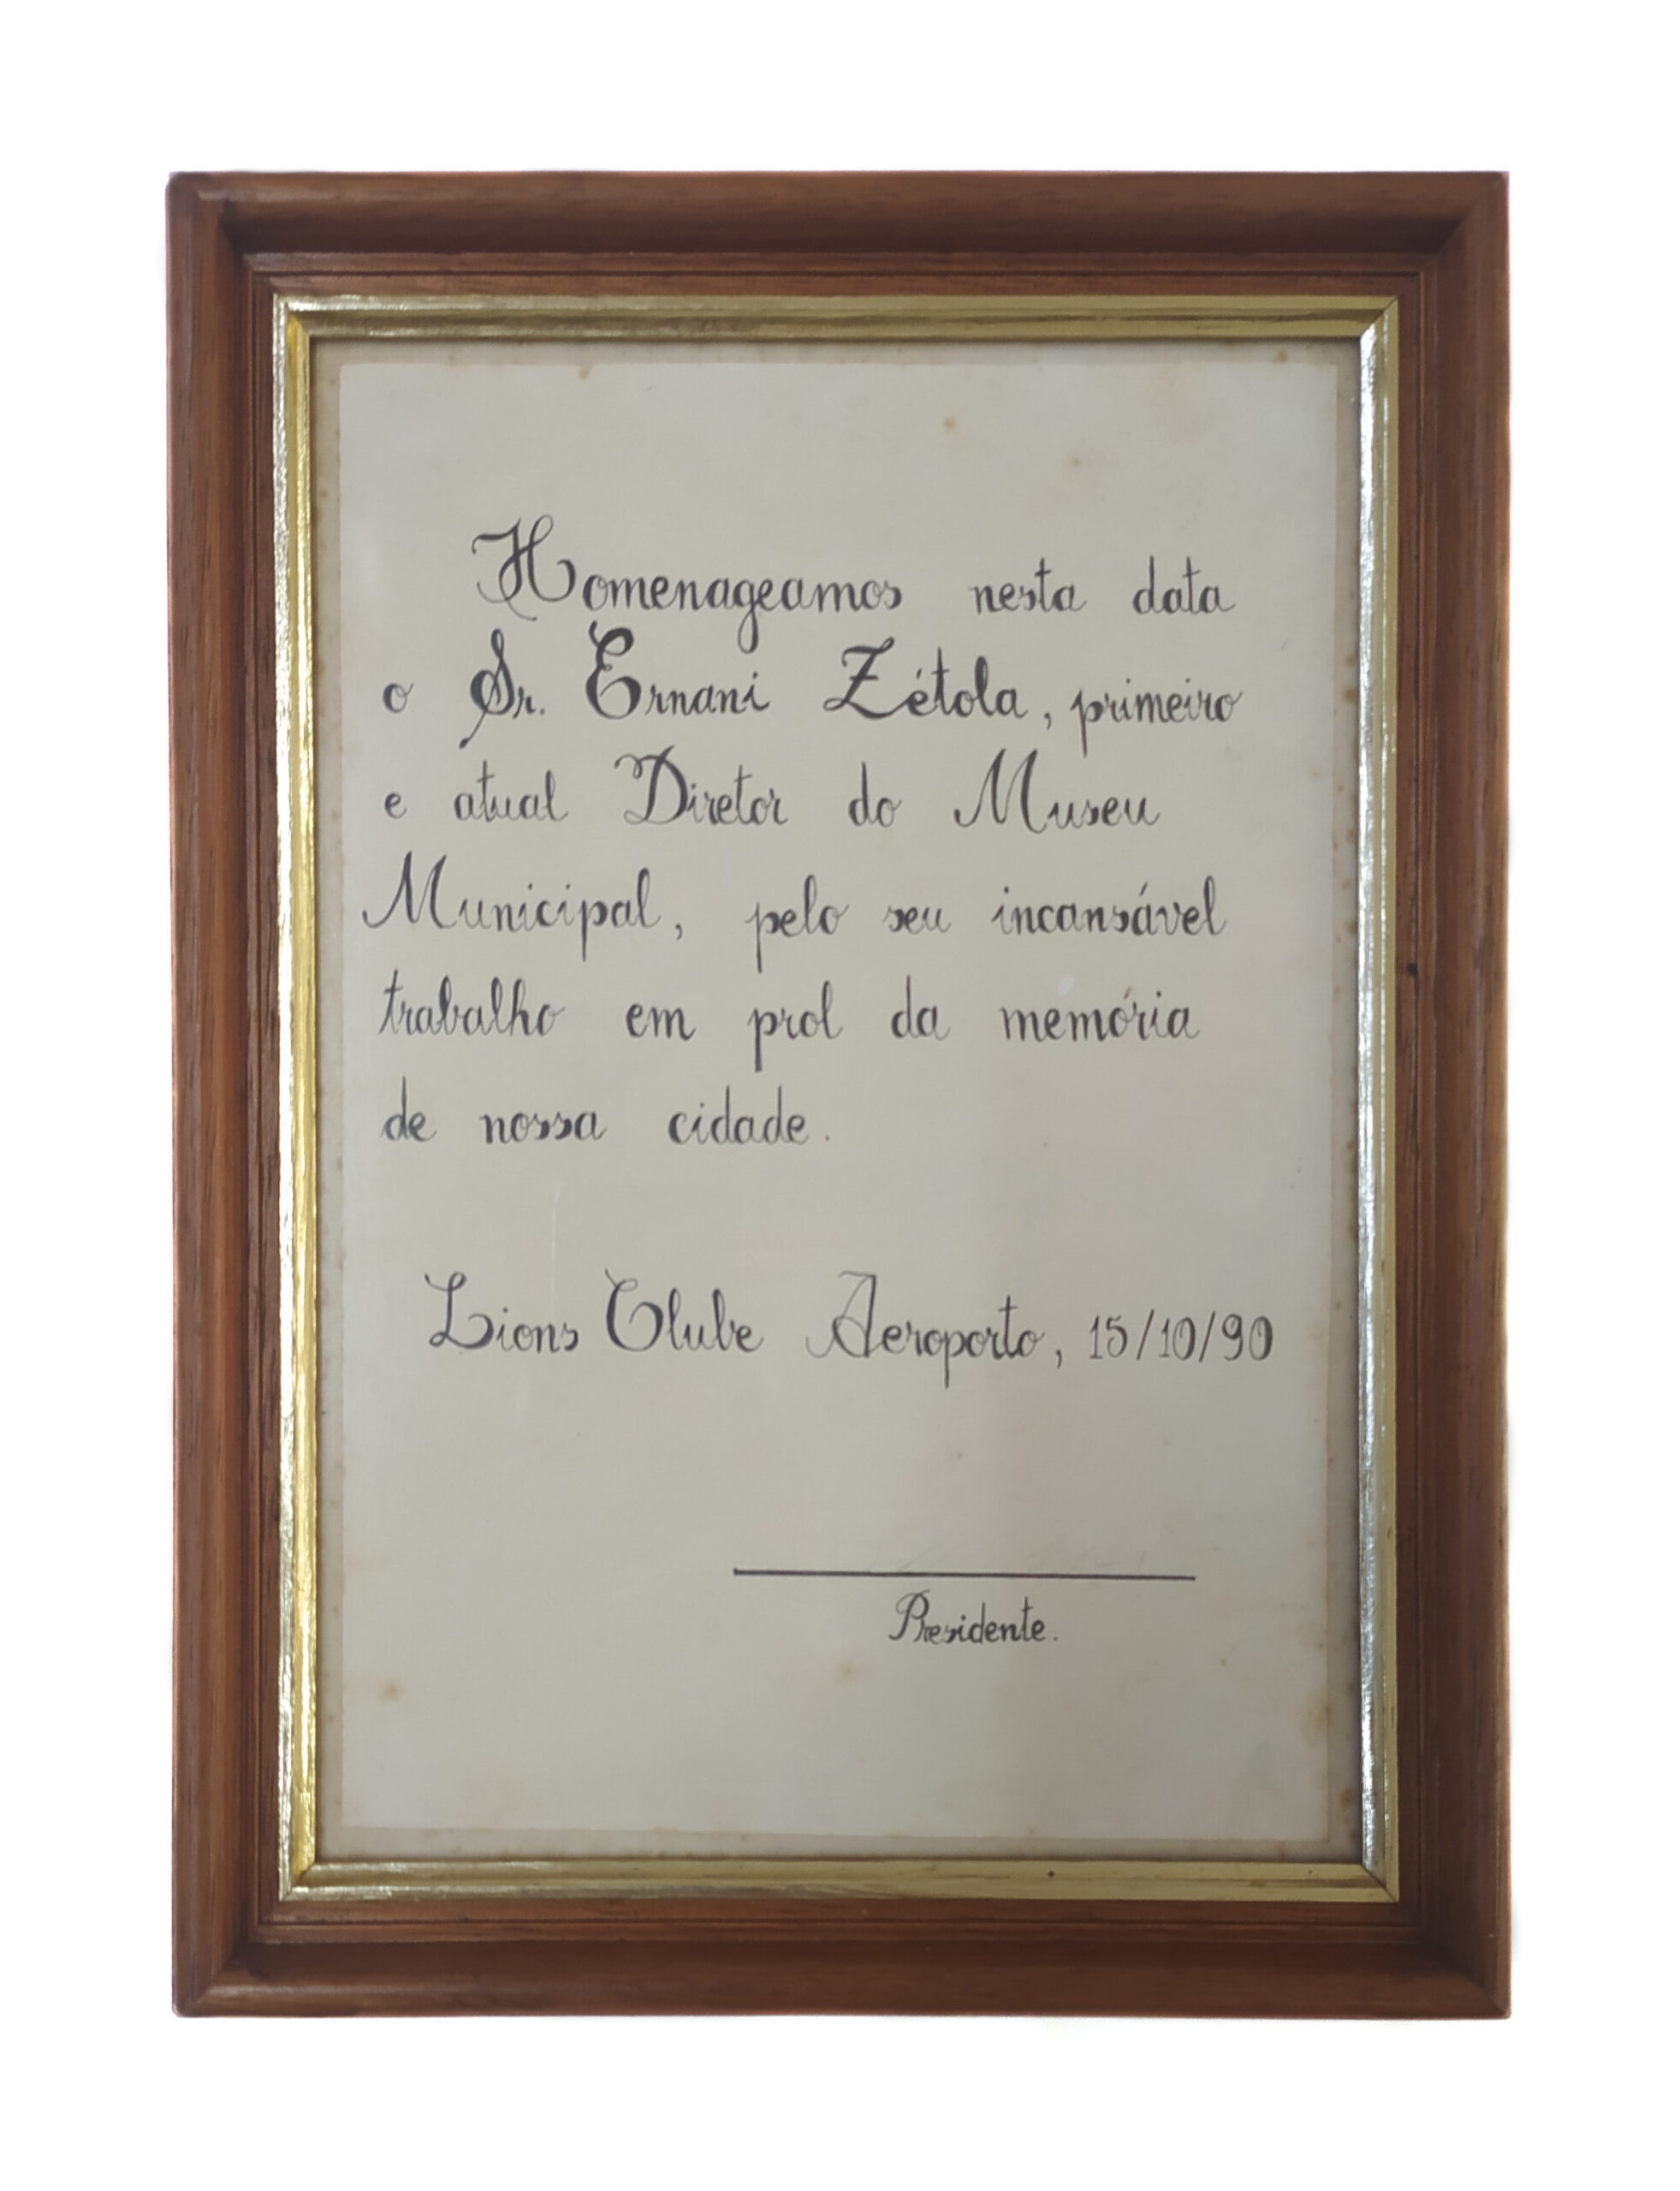 Homenageamos nesta data
o Sr. Ernani Zétola, primeiro
e atual Diretor do Museu
Municipal, pelo seu incansável
trabalho em prol da memória
de nossa cidade.
Lions Clube Aeroporto, 15/10/90
Presidente.